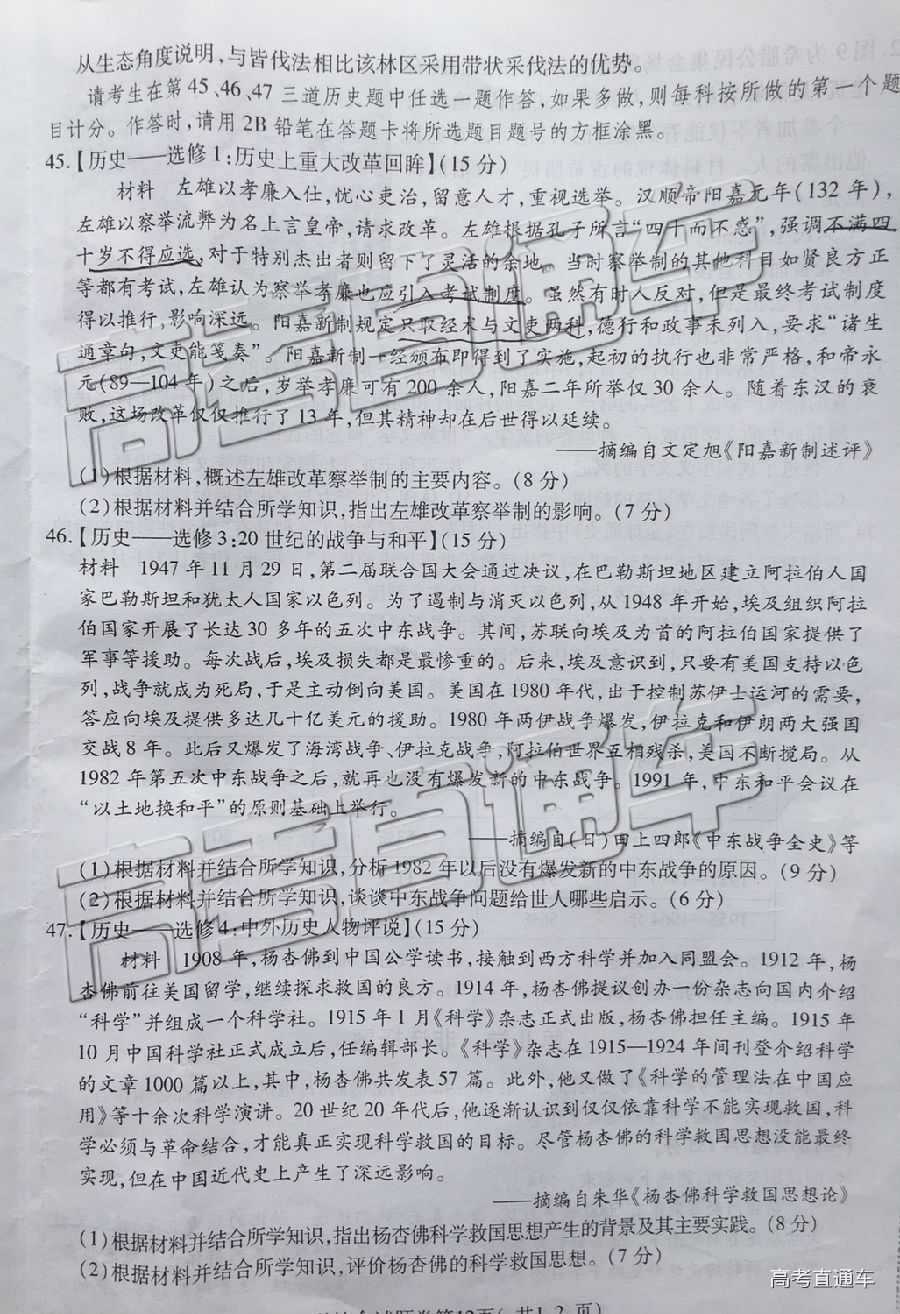 从生态角度说明,与皆伐法相比该林区采用带状采伐法的优势。
请考生在第45、46、47 三道历史题中任选一题作答,如果多做,则每科按所做的第一个题
目计分。作答时,请用 2B 铅笔在答题卡将所选题目题号的方框涂黑。
45.【历史——选修1:历史上重大改革回眸】(15分)
材料 左雄以孝廉入仕,忧心吏治,留意人才,重视选举。汉顺帝阳嘉元年(132年),
左雄以察举流弊为名上言皇帝,请求改革。左雄根据孔子所言“四十而不惑”,强调不满四
十岁不得应选,对于特别杰出者则留下了灵活的余地。当时察举制的其他科目如贤良方正
等都有考试,左雄认为察举孝廉也应引入考试制度。虽然有时人反对,但是最终考试制度
得以推行,影响深远。阳嘉新制规定只取经术与文吏两种,德行和政事未列入,要求“诸生
通章句,文吏能笺奏”。阳嘉新制一经颁布即得到了实施,起初的执行也非常严格,和帝永
元(89—104年)之后,岁举孝廉可有200余人,阳嘉二年所举仅30余人。随着东汉的衰
败,这场改革仅仅推行了13年,但其精神却在后世得以延续。
——摘编自文定旭《阳嘉新制述评》
(1)根据材料,概述左雄改革察举制的主要内容。(8分)
(2)根据材料并结合所学知识,指出左雄改革察举制的影响。(7分)
46.【历史——选修3:20世纪的战争与和平】(15分)
材料 1947年11月29日,第二届联合国大会通过决议,在巴勒斯坦地区建立阿拉伯人国
家巴勒斯坦和犹太人国家以色列。为了遏制与消灭以色列,从1948年开始,埃及组织阿拉
伯国家开展了长达30多年的五次中东战争。其间,苏联向埃及为首的阿拉伯国家提供了
军事等援助。每次战后,埃及损失都是最惨重的。后来,埃及意识到,只要有美国支持以色
列,战争就成为死局,于是主动倒向美国。美国在1980年代,出于控制苏伊士运河的需要,
答应向埃及提供多达几十亿美元的援助。1980年两伊战争爆发,伊拉克和伊朗两大强国
交战8年。此后又爆发了海湾战争、伊拉克战争,阿拉伯世界互相残杀,美国不断搅局。从
1982年第五次中东战争之后,就再也没有爆发新的中东战争。1991年,中东和平会议在
“以土地换和平”的原则基础上举行。
——摘编自(日)田上四郎《中东战争全史》等
(1)根据材料并结合所学知识,分析1982年以后没有爆发新的中东战争的原因。(9分)
(2)根据材料并结合所学知识,谈谈中东战争问题给世人哪些启示。(6分)
47.【历史——选修4:中外历史人物评说】(15分)
材料 1908年,杨杏佛到中国公学读书,接触到西方科学并加入同盟会。1912年,杨
杏佛前往美国留学,继续探求救国的良方。1914年,杨杏佛提议创办一份杂志向国内介绍
“科学”并组成一个科学社。1915年1月《科学》杂志正式出版,杨杏佛担任主编。1915年
10月中国科学社正式成立后,任编辑部长。《科学》杂志在1915—1924年间刊登介绍科学
的文章1000篇以上,其中,杨杏佛共发表57篇。此外,他又做了《科学的管理法在中国应
用》等十余次科学演讲。20世纪20年代后,他逐渐认识到仅仅依靠科学不能实现救国,科
学必须与革命结合,才能真正实现科学救国的目标。尽管杨杏佛的科学救国思想没能最终
实现,但在中国近代史上产生了深远影响。
——摘编自朱华《杨杏佛科学救国思想论》
(1)根据材料并结合所学知识,指出杨杏佛科学救国思想产生的背景及其主要实践。(8分)
(2)根据材料并结合所学知识,评价杨杏佛的科学救国思想。(7分)
高考直通车
高考直通车
高考直通车